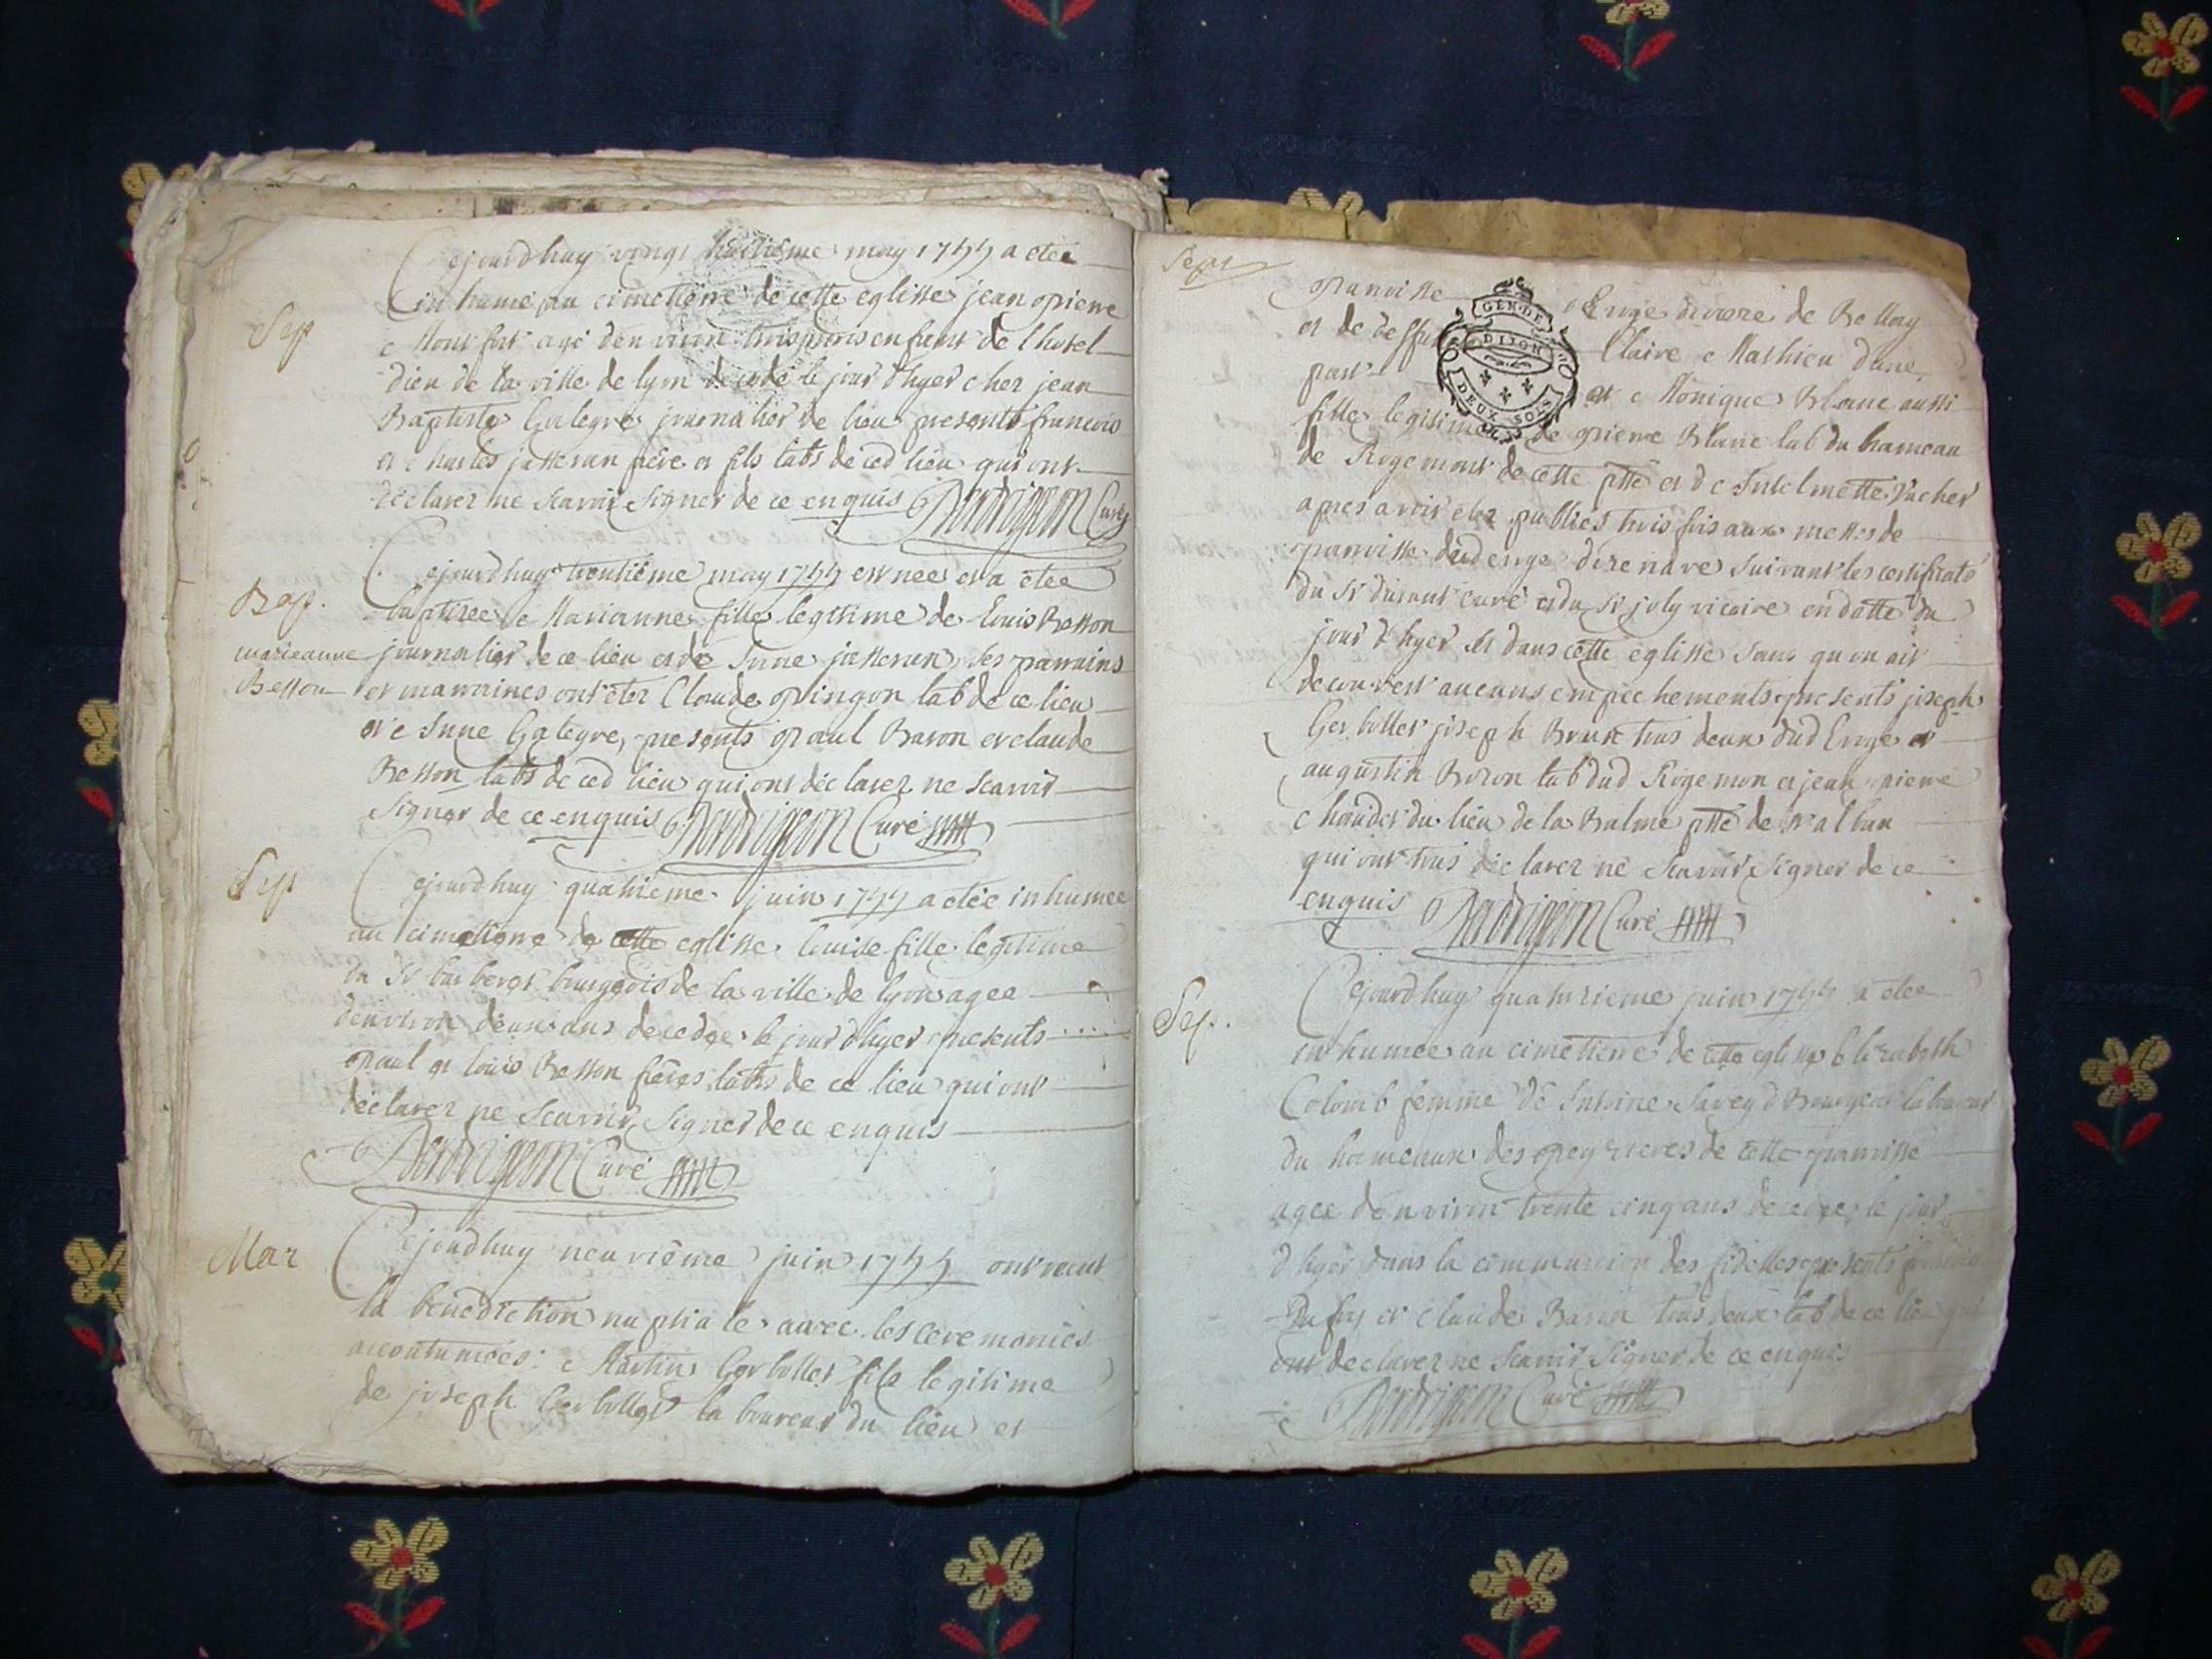 Cejourdhuy vingt huitième may 1755 a étée
Sep
inhumé au cimetière de cette eglisse jean pierre
Monfort agé denviron trois mois enfant de lhotel
dieu de la ville de lyon decedé le jour dhyer chez jean
Baptiste Galegre journalier de lieu presents francois
et charles jasseran frère et fils labs de ced lieu qui ont
déclarez ne scavoir signer de ce enquis Perdrigeon Curé
Cejourdhuy trentième may 1755 est nee et a étée
Bap.
marieanne
Besson
baptizee Marianne fille legitime de Louis Besson
journalier de ce lieu et de Anne jasseran, ses parrains
et marraines ont étez Claude pingon lab de ce lieu
et Anne Galegre, presents paul Baron et claude
Besson labs de ced lieu qui ont déclarez ne scavoir
signer de ce enquis Perdrigeon Curé
Sep
Cejourdhuy quatrieme juin 1755 a etée inhumee
au cimetiere de cette eglisse louise fille legitime
du Sr barberet bourgeois de la ville de lyon agee
denviron deux ans decedee le jour dhyer presents
paul et louis Besson frères labs de ce lieu qui ont
déclarez ne scavoir signer de ce enquis
Perdrigeon Curé
Mar
Cejourdhuy neuvième juin 1755 ont recut
la bénédiction nuptiale avec les ceremonies
accoutumées: Martin Gerbollet fils legitime
de joseph Gerbollet laboureur du lieu et
Sept
parroisse Enge diocese de Bellay
et de deffunte Claire Mathieu dune
part et Monique Blanc aussi
GEN. DE
DIJON
DEUX SOLS
fille legitime de pierre Blanc lab du hameau
de Rogemont de cette psse et de Antelmette Vacher
apres avoir etez publiés trois fois aux messes de
parroisse dud enge direnave suivant les certificats
du Sr curé et du Sr joly vicaire en datte du
jour dhyer et dans cette eglisse sans quon ait
decouvert aucuns empéchements presents joseph
Gerbollet joseph Brun tous deux dud Enge et
augustin Boron lab dud Rogemon et jean pierre
chaudet du lieu de la Balme psse de St alban
qui ont tous déclarez ne scavoir signer de ce
enquis Perdrigeon Curé
Sep.
Cejourdhuy quatorzieme juin 1755 a étee
inhumee au cimetiere de cette eglisse Elizabeth
Colomb femme de Antoine Savey d Bourgeois laboureur
du hameaux des peyrieres de cette parroisse
agee denviron trente cinq ans decedee le jour
dhyer dans la communion des fidelles presents
Dufey et claude Baron tous deux lab de ce lieu qui
ont declarez ne scavoir signer de ce enquis
Perdrigeon Curé